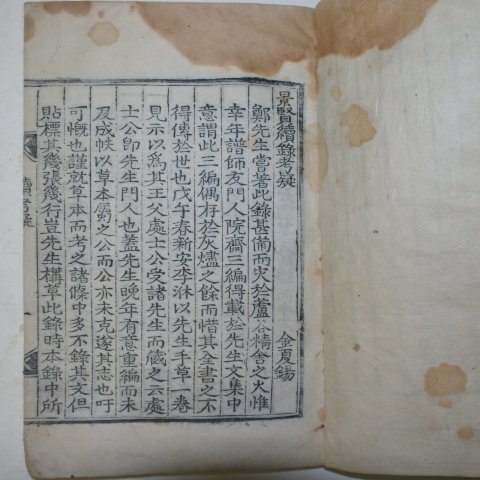 景賢續錄考疑
金夏錫
鄭先生嘗著此錄甚備而灾於蘆谷精舍之火惟
幸年譜師友門人院齋三編得載於先生文集中
意謂此三編偶存於灰燼之餘而惜其全書之不
得傳於世也戊午春新安李淋以先生手草一卷
見示以爲其王父處士公受諸先生而藏之云處
士公卽先生門人也蓋先生晩年有意重編而未
及成帙以草本屬之公而公亦未克遂其志也吁
可慨也謹就草本而考之諸條中多不錄其文但
貼標其幾張幾行豈先生構草此錄時本錄中所